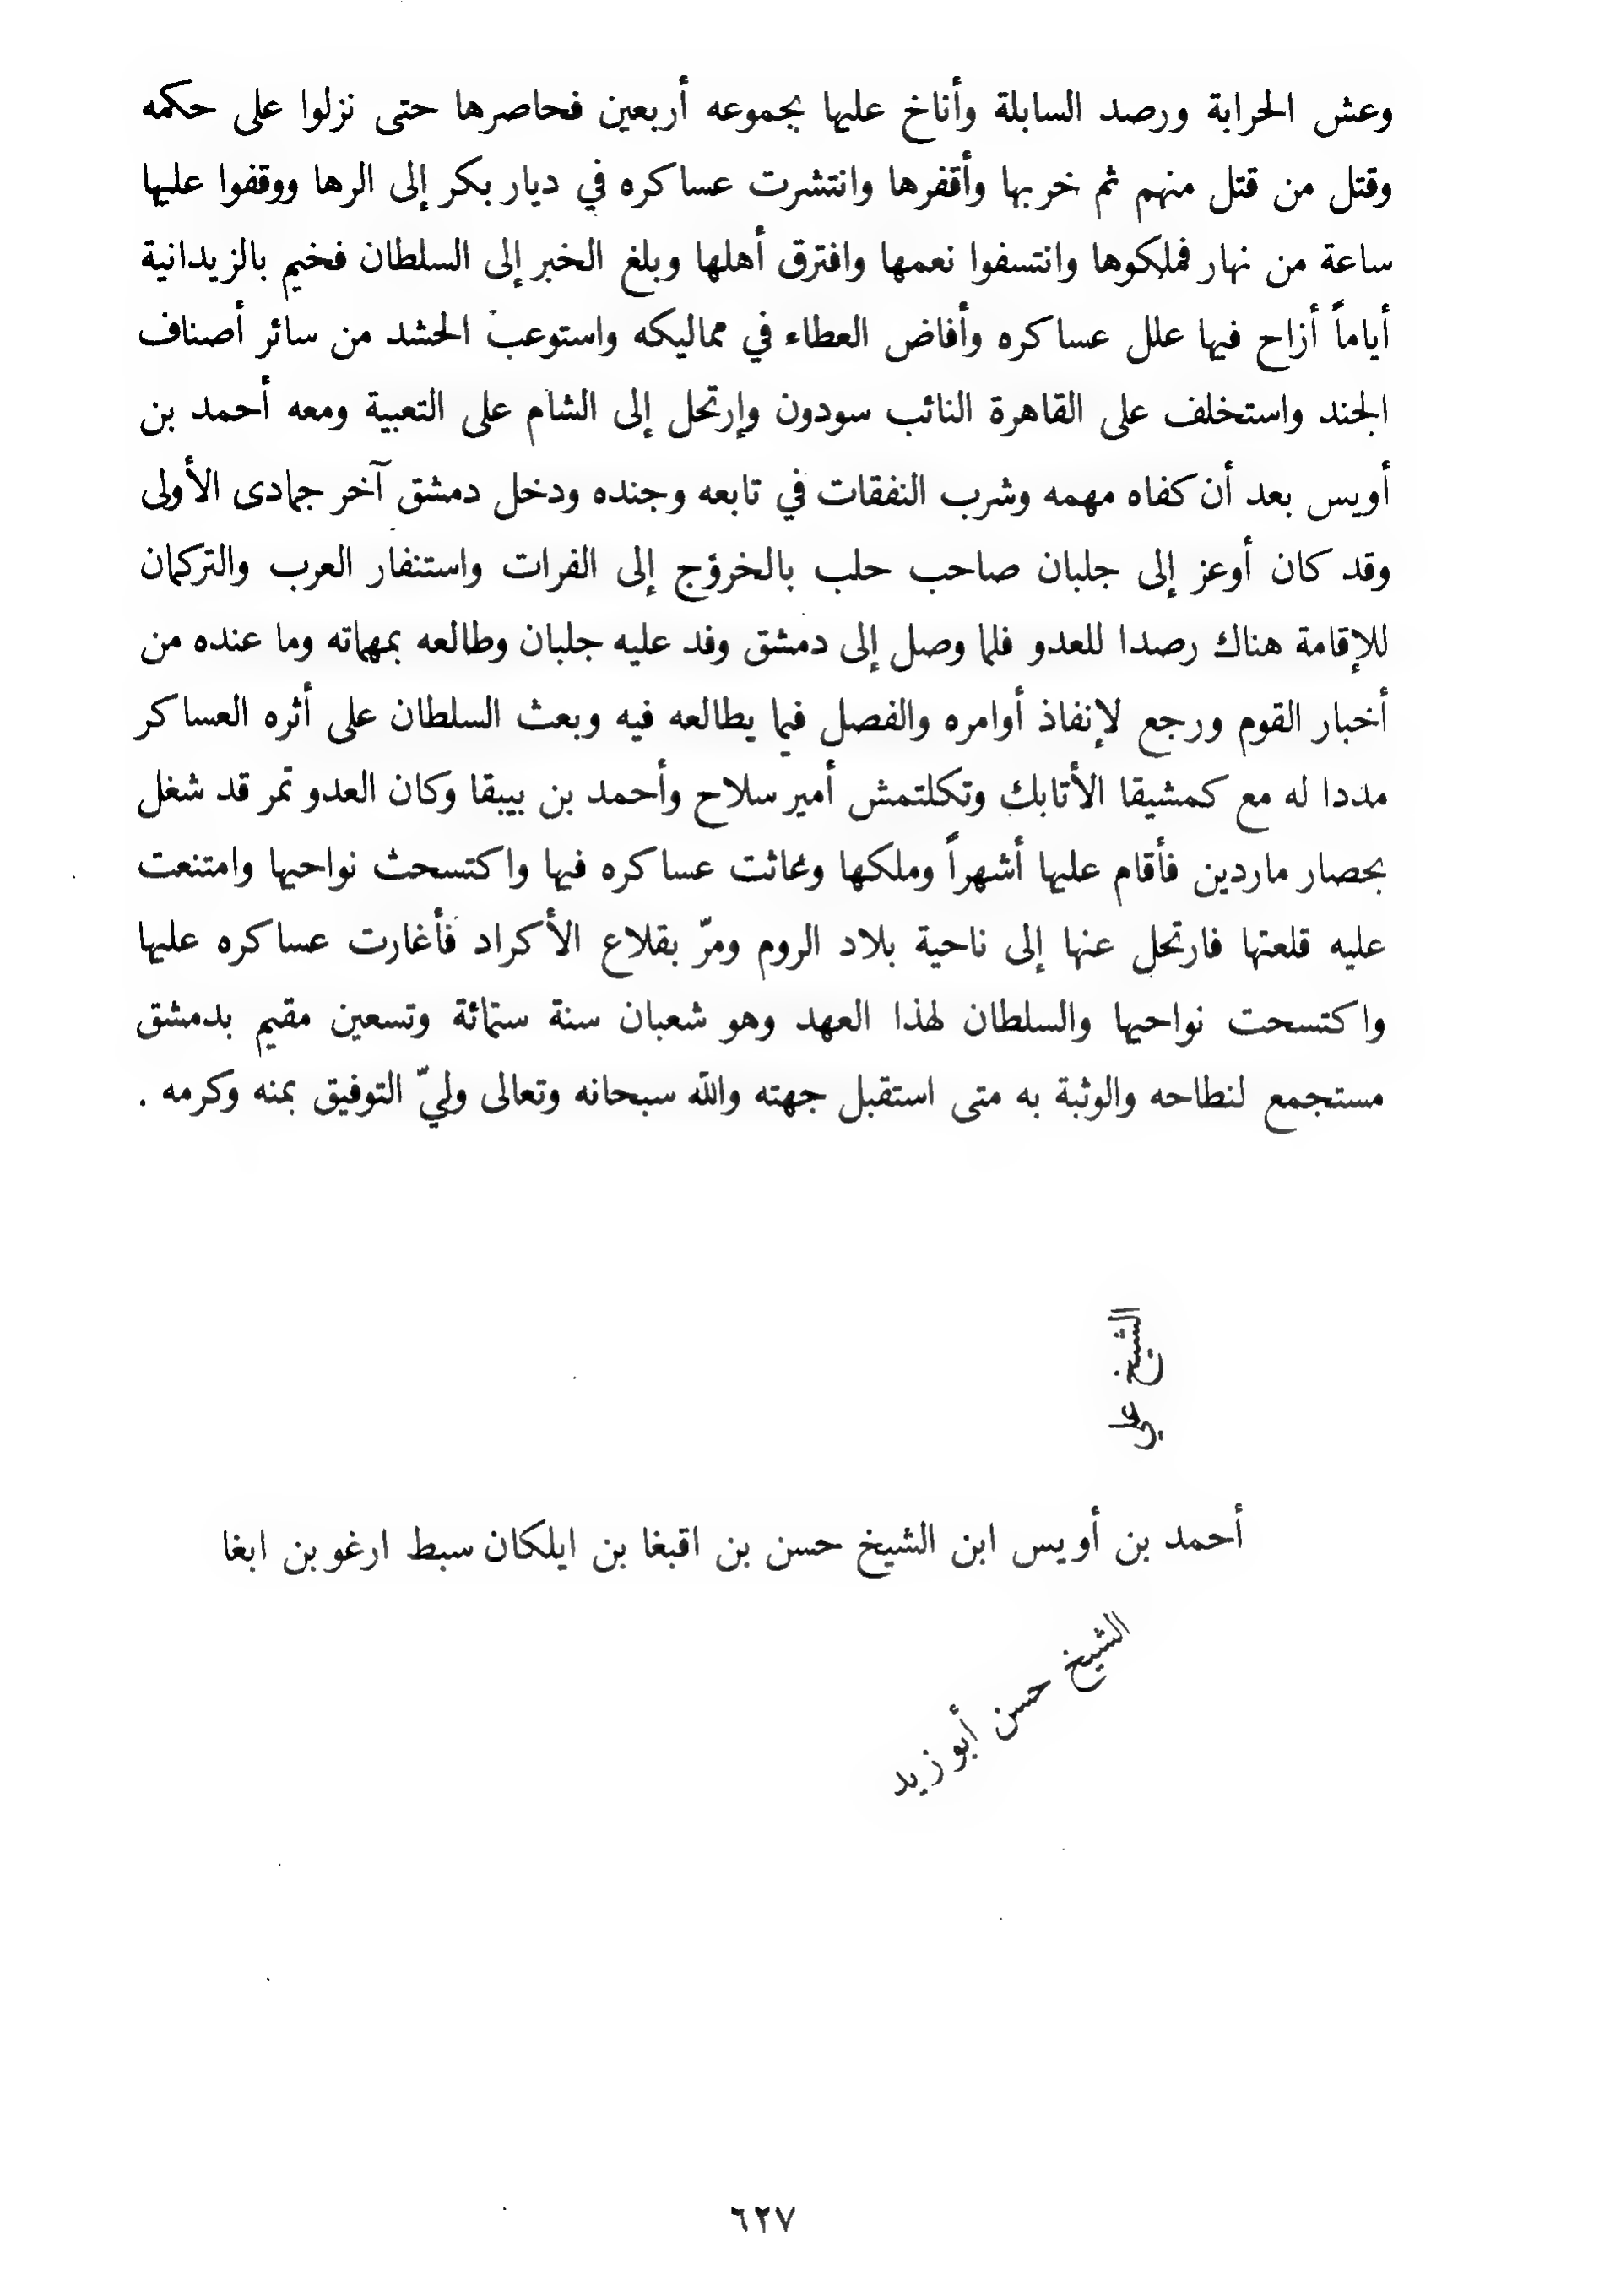 وعش الحرابة ورصد السابلة وأناخ عليها بجموعه أربعين فحاصرها حتى نزلوا على حكمه
وقتل من قتل منهم ثم خربها وأقفرها وانتشرت عساكره في ديار بكر إلى الرها ووقفوا عليها
ساعة من نهار فملكوها وانتسفوا نعمها وافترق أهلها وبلغ الخبر إلى السلطان فخيم بالزيدانية
أياماً أزاح فيها علل عساكره وأفاض العطاء في مماليكه واستوعب الحشد من سائر أصناف
الجند واستخلف على القاهرة النائب سودون وإرتحل إلى الشام على التعبية ومعه أحمد بن
أويس بعد أن كفاه مهمه وشرب النفقات في تابعه وجنده ودخل دمشق آخر جمادى الأولى
وقد كان أوعز إلى جلبان صاحب حلب بالخروج إلى الفرات واستنفار العرب والتركمان
للإقامة هناك رصدا للعدو فلما وصل إلى دمشق وفد عليه جلبان وطالعه بمهماته وما عنده من
أخبار القوم ورجع لإنفاذ أوامره والفصل فيما يطالعه فيه وبعث السلطان على أثره العساكر
مددا له مع كمشيقا الأتابك وتكلتمش أمير سلاح وأحمد بن بيبقا وكان العدو تمر قد شغل
بحصار ماردين فأقام عليها أشهراً وملكها وغاثت عساكره فيها واكتسحث نواحيها وامتنعت
عليه قلعتها فارتحل عنها إلى ناحية بلاد الروم ومرّ بقلاع الأكراد فأغارت عساكره عليها
واكتسحت نواحيها والسلطان لهذا العهد وهو شعبان سنة ستمائة وتسعين مقيم بدمشق
مستجمع لنطاحه والوثبة به متى استقبل جهته والله سبحانه وتعالى وليّ التوفيق بمنه وكرمه .
الشيخ علي
أحمد بن أويس ابن الشيخ حسن بن اقبغا بن ايلكان سبط ارغو بن ابغا
الشيخ حسن أبو زيد
٦٢٧